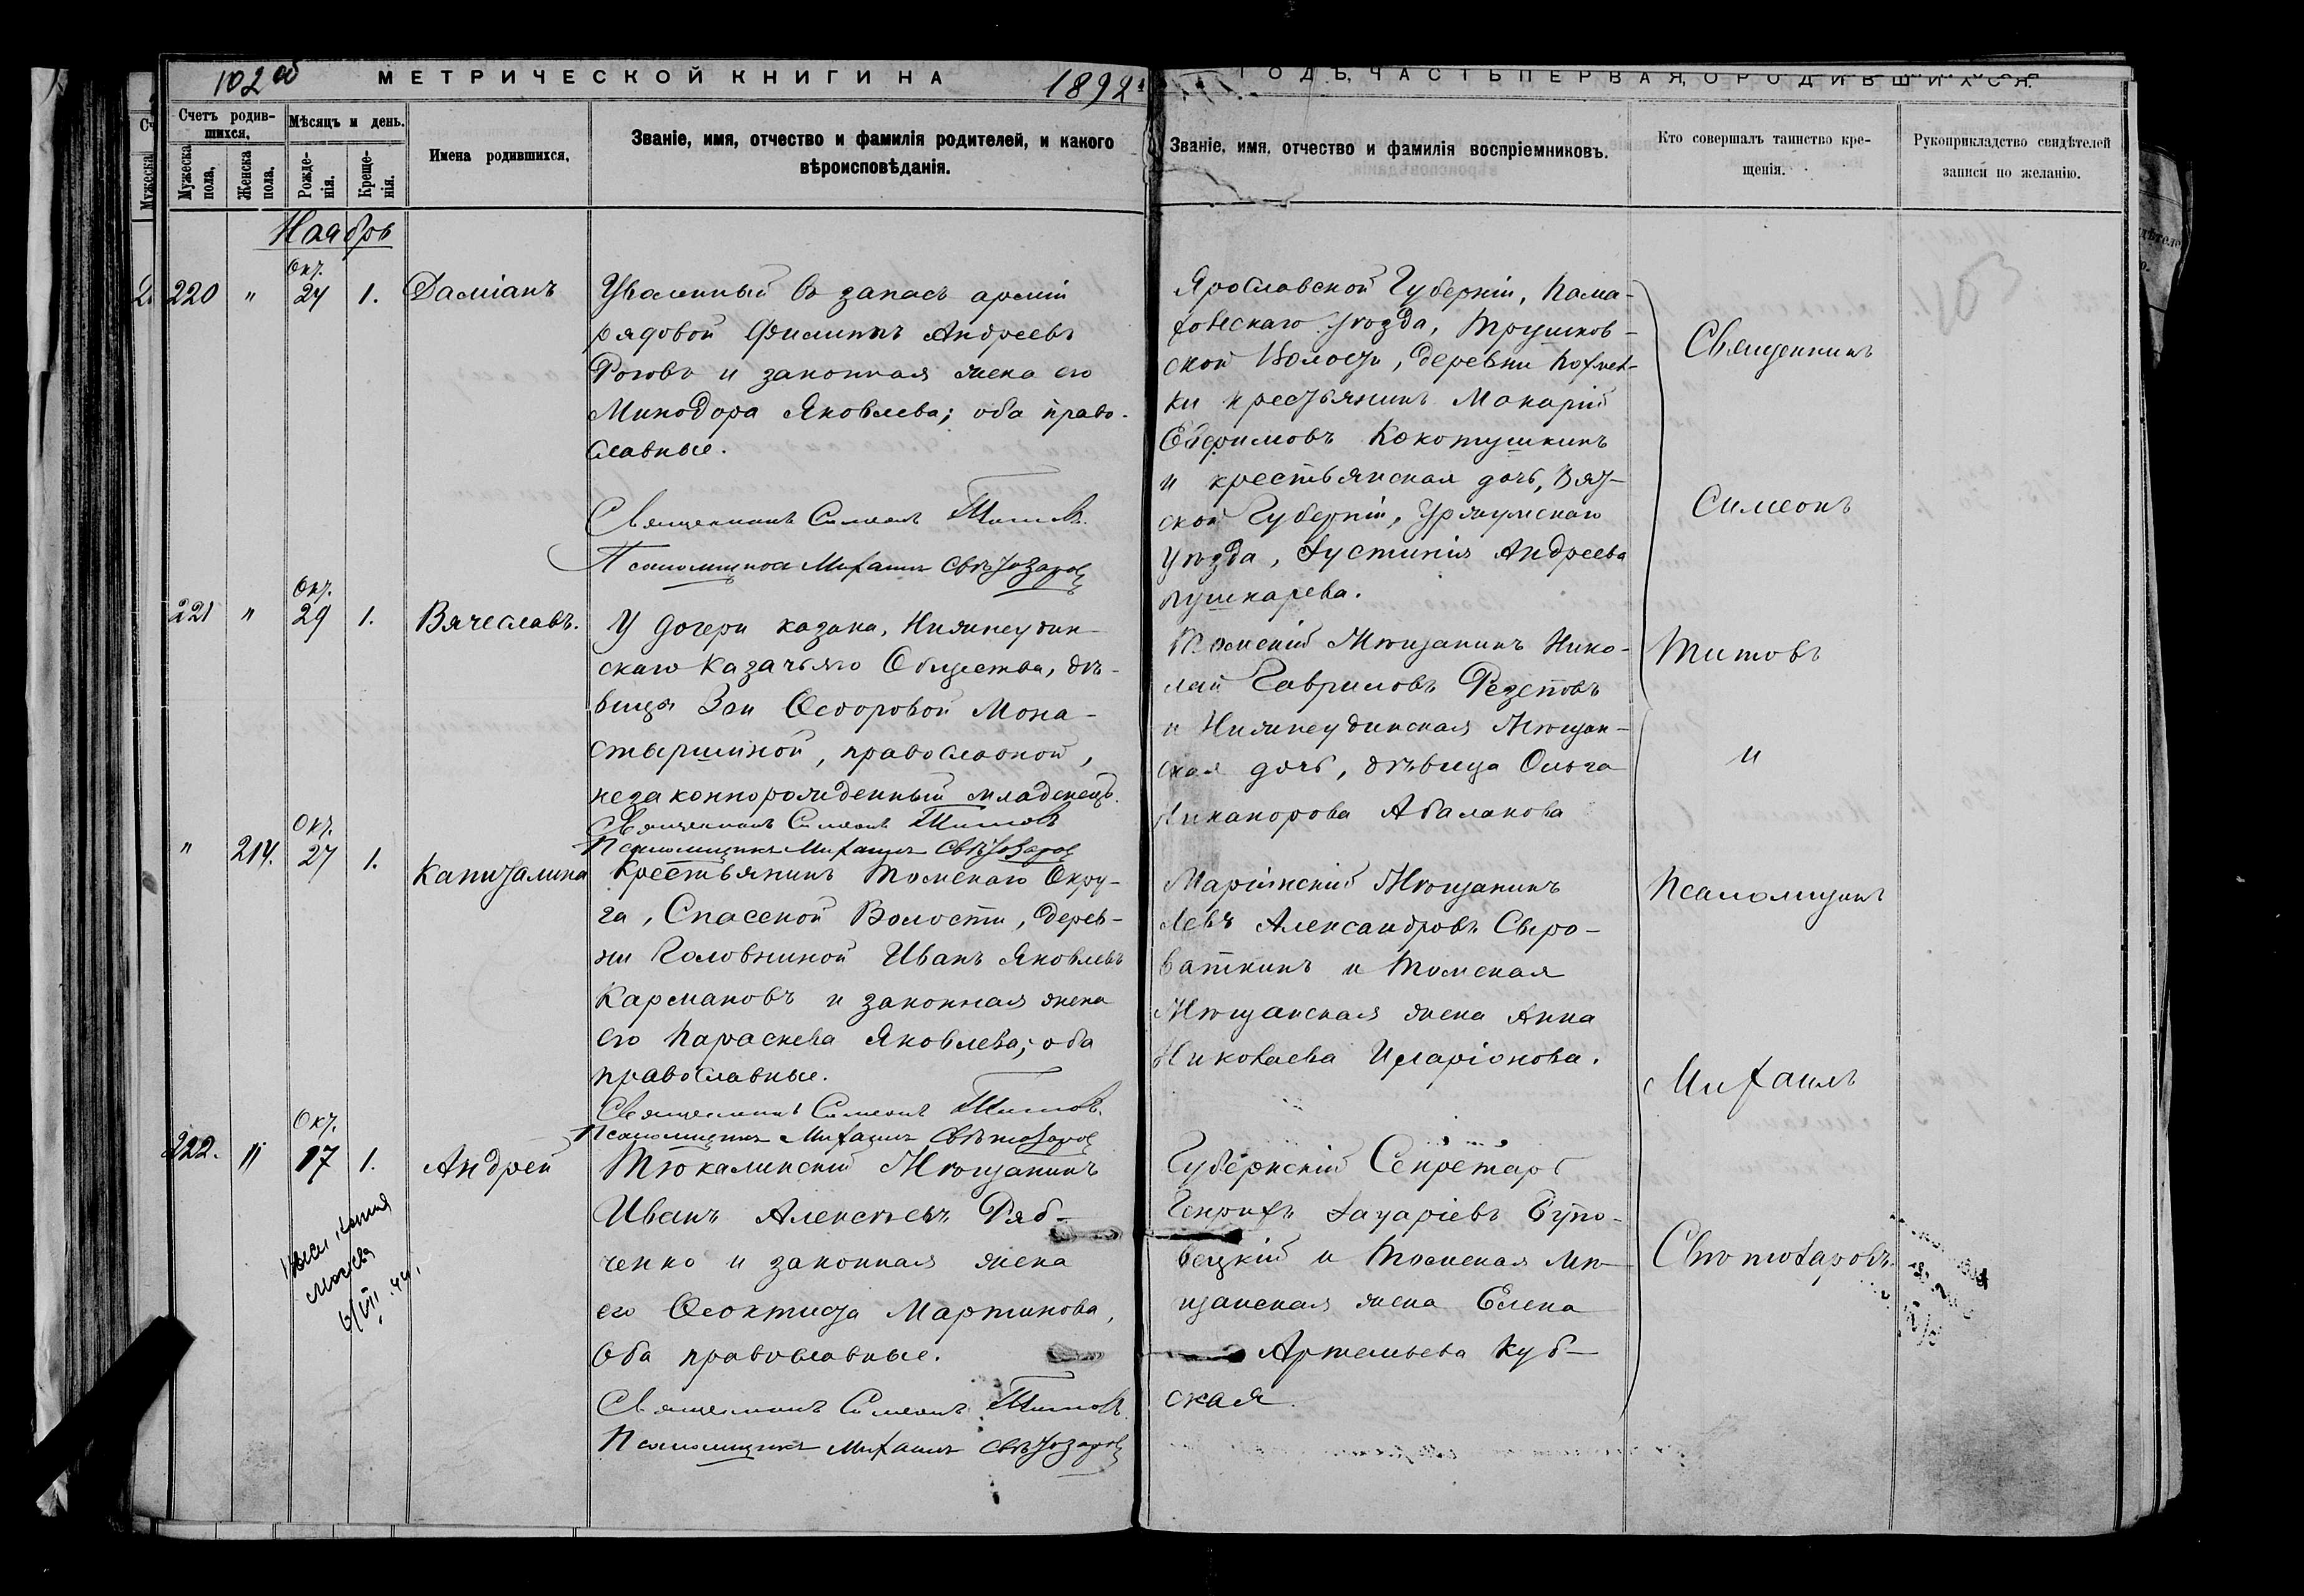 102 об
МЕТРИЧЕСКОЙ КНИГИ НА 1892
ГОДЪ, ЧАСТЬ ПЕРВАЯ, О РОДИВШИХСЯ.
Счетъ родив-
шихся.
Мужеска пола.
Женска пола.
Мѣсяцъ и день.
Рожде-
нія.
Креще-
нія.
Имена родившихся.
Званіе, имя, отчество и фамилія родителей, и какого
вѣроисповѣданія.
Званіе, имя, отчество и фамилія воспріемниковъ.
Кто совершалъ таинство кре-
щенія.
Рукоприкладство свидѣтелей
записи по желанію.
Ноябрь
220 " Окт. 24 1. Даміанъ
Уволенный въ запасъ арміи
рядовой Филиппъ Андреевъ
Роговъ и законная жена его
Минодора Яковлева; оба право-
славные.
Священникъ Симеонъ Титовъ.
Псаломщикъ Михаилъ Свѣтозаровъ
Ярославской Губерніи, Рома-
новскаго Уѣзда,
ской Волости, деревни
ки крестьянинъ Макарій
Ефимовъ Кокотушкинъ
и крестьянская дочь, Вят-
ской Губерніи, Уржумскаго
Уѣзда, Іустинія Андреева
Пушкарева.
221 " Окт. 29 1. Вячеславъ.
У дочери казака, Нижнеудин-
скаго Казачьяго Общества, дѣ-
вицы Зои Ѳедоровой Мона-
стыршиной, православной,
незаконнорожденный младенецъ.
Священникъ Симеонъ Титовъ
Псаломщикъ Михаилъ Свѣтозаровъ
Томскій Мѣщанинъ Нико-
лай Гавриловъ Резеповъ
и Нижнеудинская Мѣщан-
ская дочь, дѣвица Ольга
Никанорова Абалакова
" 214. Окт. 27 1. Капиталина
Крестьянинъ Томскаго Окру-
га, Спасской Волости, дерев-
ни Головниной Иванъ Яковлевъ
Кармановъ и законная жена
его Параскева Яковлева; оба
православные.
Священникъ Симеонъ Титовъ.
Псаломщикъ Михаилъ Свѣтозаровъ
Маріинскій Мѣщанинъ
Левъ Александровъ Сыро-
ваткинъ и Томская
Мѣщанская жена Анна
Николаева Иларіонова.
222. " Окт. 17 1. Андрей
Тюкалинскій Мѣщанинъ
Иванъ Алексѣевъ Ряб-
ченко и законная жена
его Ѳеоктиста Мартинова,
оба православные.
Священникъ Симеонъ Титовъ.
Псаломщикъ Михаилъ Свѣтозаровъ
Губернскій Секретарь
Генрихъ
вецкій и Томская Мѣ-
щанская жена Елена
Артемьева Куб-
ская.
Священникъ
Симеонъ
Титовъ
и
Псаломщикъ
Михаилъ
Свѣтозаровъ.